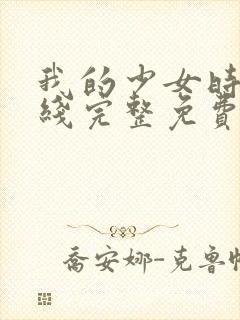 我的少女時
綫完整免費
喬安娜-克魯